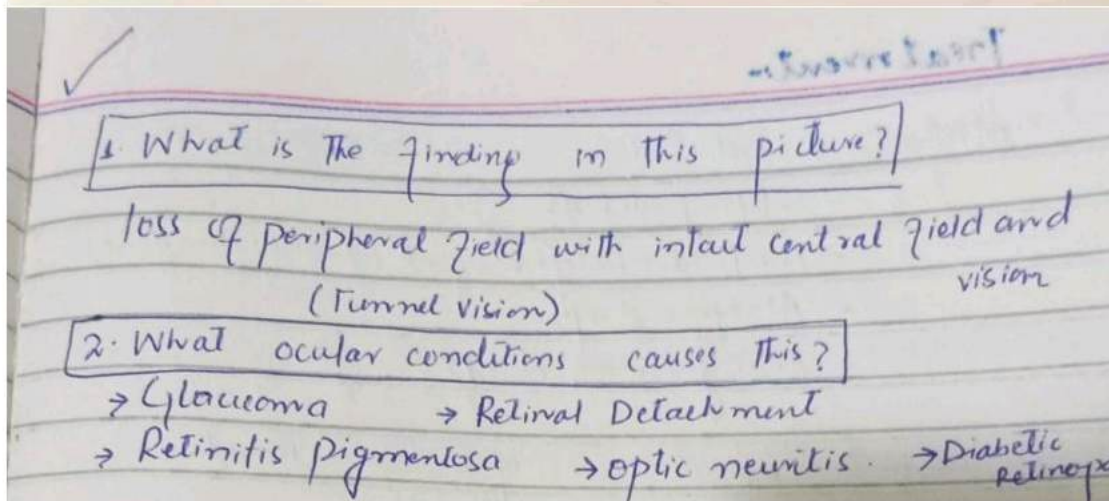 1. What is The finding in this picture?
loss of peripheral field with intact central field and
vision
(Tunnel vision)
2. What ocular conditions causes This?
→ Glaucoma → Retinal Detachment
→ Retinitis pigmentosa → optic neuritis. → Diabetic
Retinop